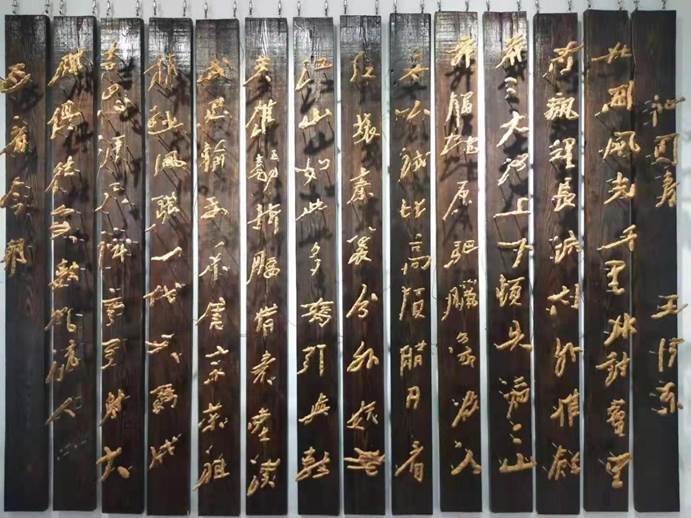 沁园春 毛泽东
北国风光千里冰封万里
雪飘望長城内外惟馀
莽莽大河上下顿失滔滔山
舞银蛇原驰蜡象欲与天
公试比高须晴日看
红装素裹分外妖娆
江山如此多娇引無数
英雄竞折腰惜秦皇漢
武略输文采唐宗宋祖
稍逊风骚一代天骄成
吉思汗只识弯弓射大
雕俱往矣数风流人
看今朝